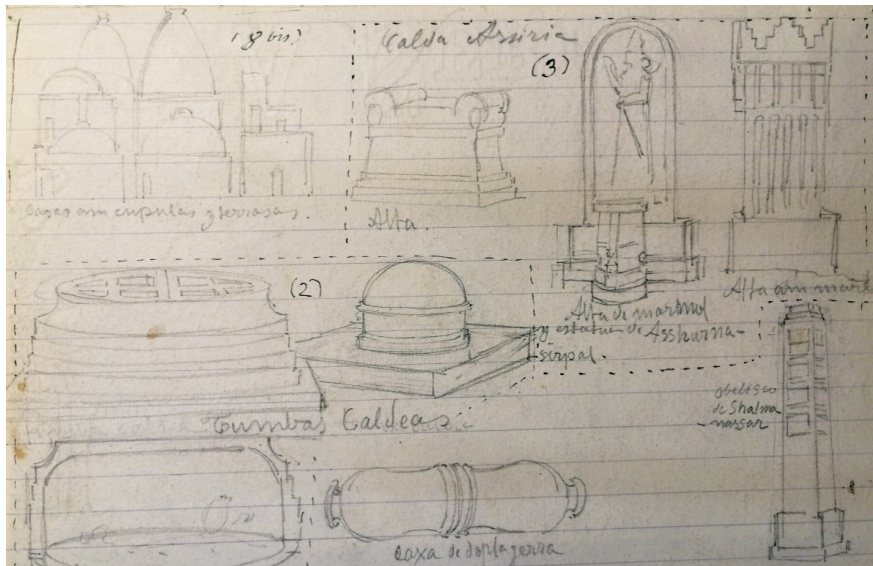 (8 bis)
Calda Assiria
(3)
Casas am cupulas y terrasas.
Alta.
(2)
Alta de marmol
y estatua de Asshurna-
sirpal.
Alta am
Tumbas Caldeas
obelisco
de Shalma
nassar
caxa de dopla gerra